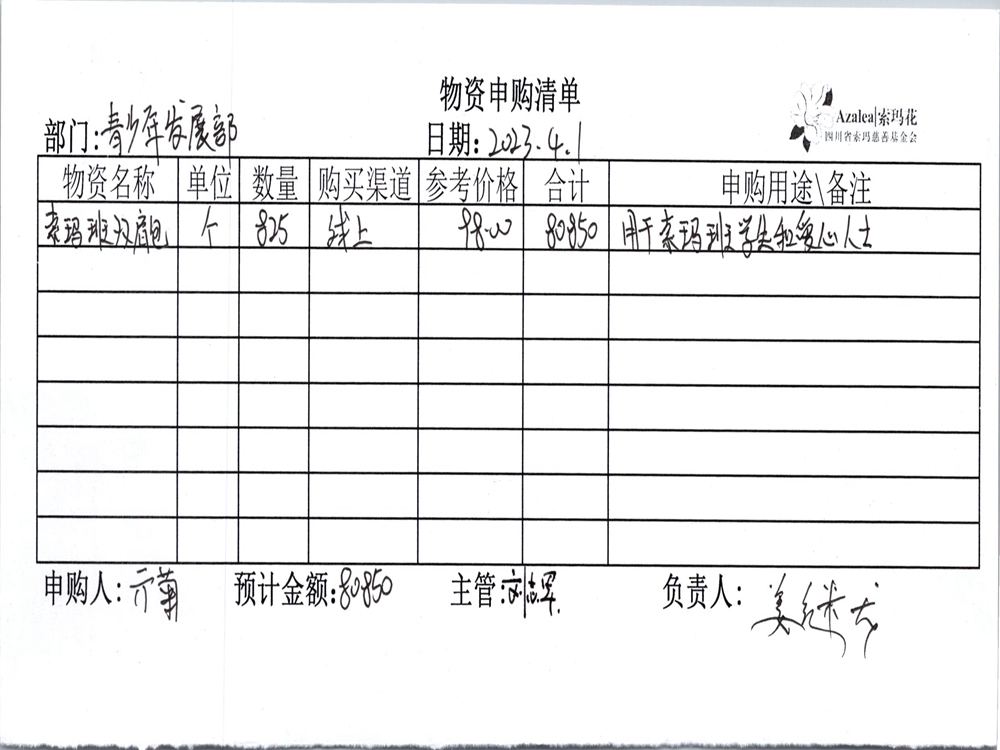 物资申购清单
Azalea|索玛花
四川省索玛慈善基金会
部门:青少年发展部 日期:2023.4.1
物资名称 单位 数量 购买渠道 参考价格 合计 申购用途\备注
索玛班双肩包 个 825 线上 98.00 80850 用于索玛班学生和爱心人士
申购人: 预计金额:80850 主管:刘志军 负责人:姜继龙